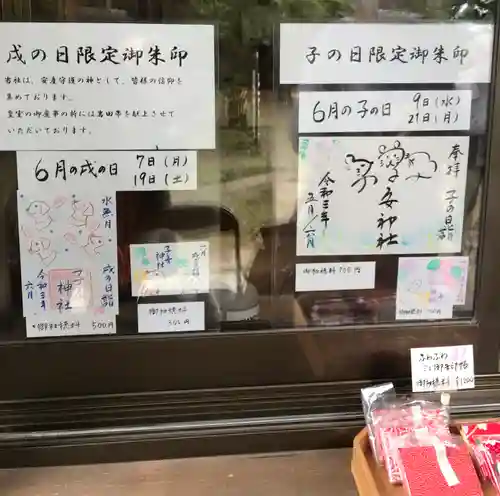 戌の日限定御朱印
当社は、安産守護の神として、皆様の信仰を
集めております。
皇室の御産事の折には岩田帯を献上させて
いただいております。
6月の戌の日
7日(月)
19日(土)
水無月
戌の日詣
神社
令和三年
六月
御初穂料 500円
御初穂料
500円
子の日限定御朱印
6月の子の日
9日(水)
21日(月)
奉拝
子の日詣
子安神社
令和三年
御初穂料 700円
ふわふわ
御初穂料 ¥1200